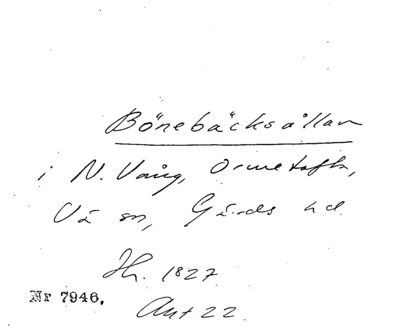 Bönebäcksållan
i N. Vång, Ormetofta,
Vä sn, Gärds hd.
Hr. 1827
Nr 7946.
Ant 22